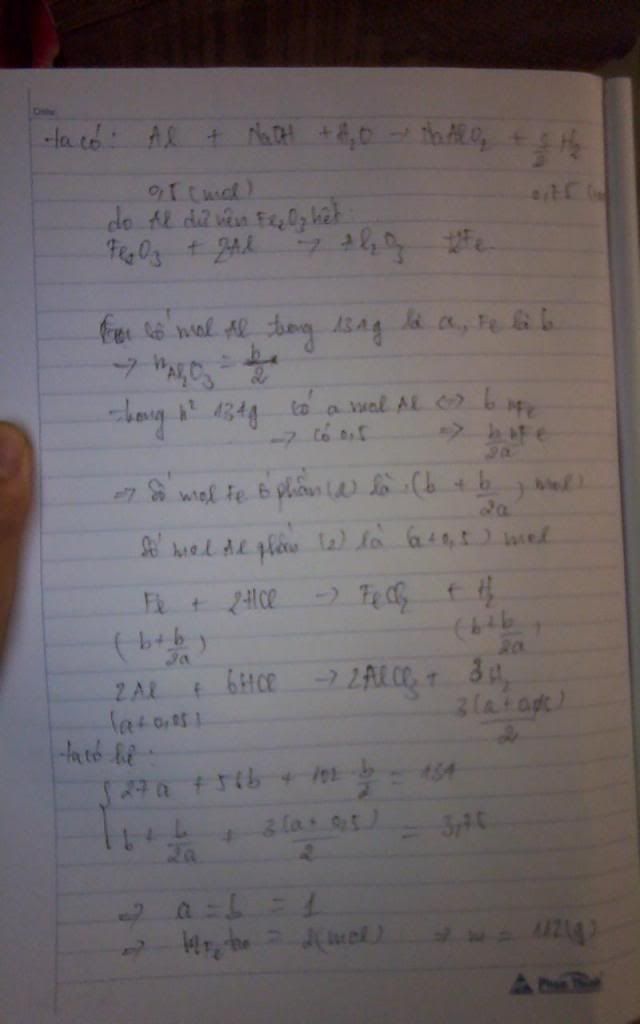 Date
ta có: Al + NaOH + H₂O → NaAlO₂ + 3/2 H₂
0,5 (mol) 0,75
do Al dư nên Fe₂O₃ hết
Fe₂O₃ + 2Al → Al₂O₃ + 2Fe
số mol Al trong 134g là a, Fe là b
→ nAl₂O₃ = b/2
trong h² 134g có a mol Al ⇔ b nFe
→ có 0,5 ⇒ b/2a nFe
⇒ số mol Fe ở phần (2) là (b + b/2a) mol
Số mol Al phần (2) là (a + 0,5) mol
Fe + 2HCl → FeCl₂ + H₂
(b + b/2a) (b + b/2a)
2Al + 6HCl → 2AlCl₃ + 3H₂
(a + 0,05) 3(a + 0,5)/2
ta có hệ:
{ 27a + 56b + 102 b/2 = 134
b + b/2a + 3(a + 0,5)/2 = 3,75
⇒ a = b = 1
⇒ nFe = 2(mol) ⇒ m = 112(g)